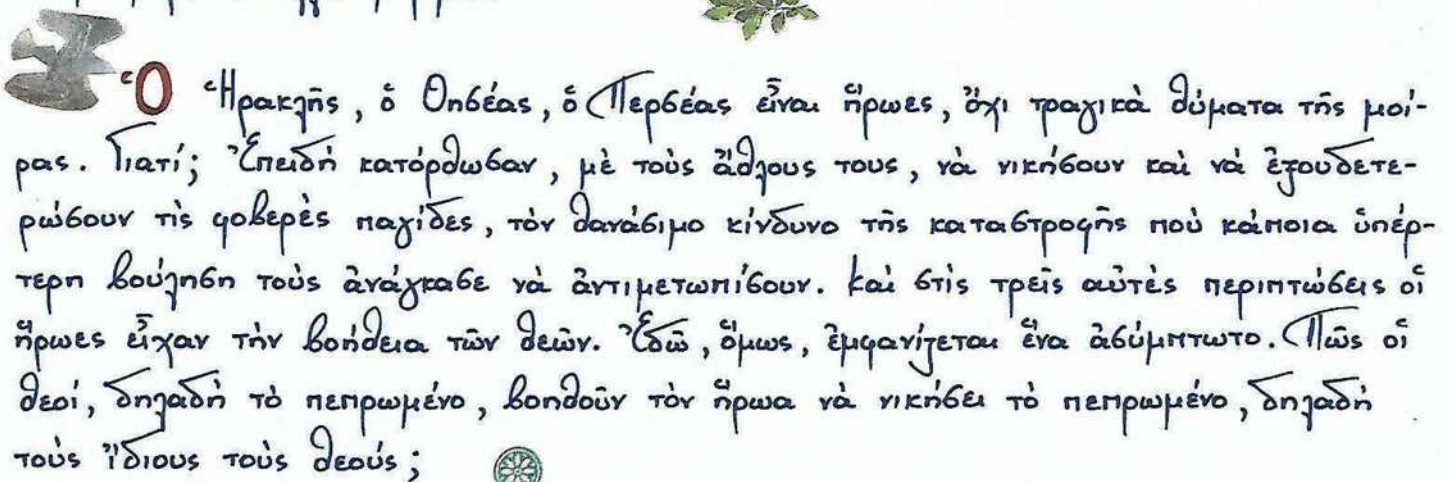 Ὁ Ἡρακλῆς, ὁ Θησέας, ὁ Περσέας εἶναι ἥρωες, ὄχι τραγικὰ θύματα τῆς μοί-
ρας. Γιατί; Ἐπειδὴ κατόρθωσαν, μὲ τοὺς ἄθλους τους, νὰ νικήσουν καὶ νὰ ἐξουδετε-
ρώσουν τὶς φοβερὲς παγίδες, τὸν θανάσιμο κίνδυνο τῆς καταστροφῆς ποὺ κάποια ὑπέρ-
τερη βούληση τοὺς ἀνάγκασε νὰ ἀντιμετωπίσουν. Καὶ στὶς τρεῖς αὐτὲς περιπτώσεις οἱ
ἥρωες εἶχαν τὴν βοήθεια τῶν θεῶν. Ἐδῶ, ὅμως, ἐμφανίζεται ἕνα ἀσύμπτωτο. Πῶς οἱ
θεοί, δηλαδὴ τὸ πεπρωμένο, βοηθοῦν τὸν ἥρωα νὰ νικήσει τὸ πεπρωμένο, δηλαδὴ
τοὺς ἴδιους τοὺς θεούς;